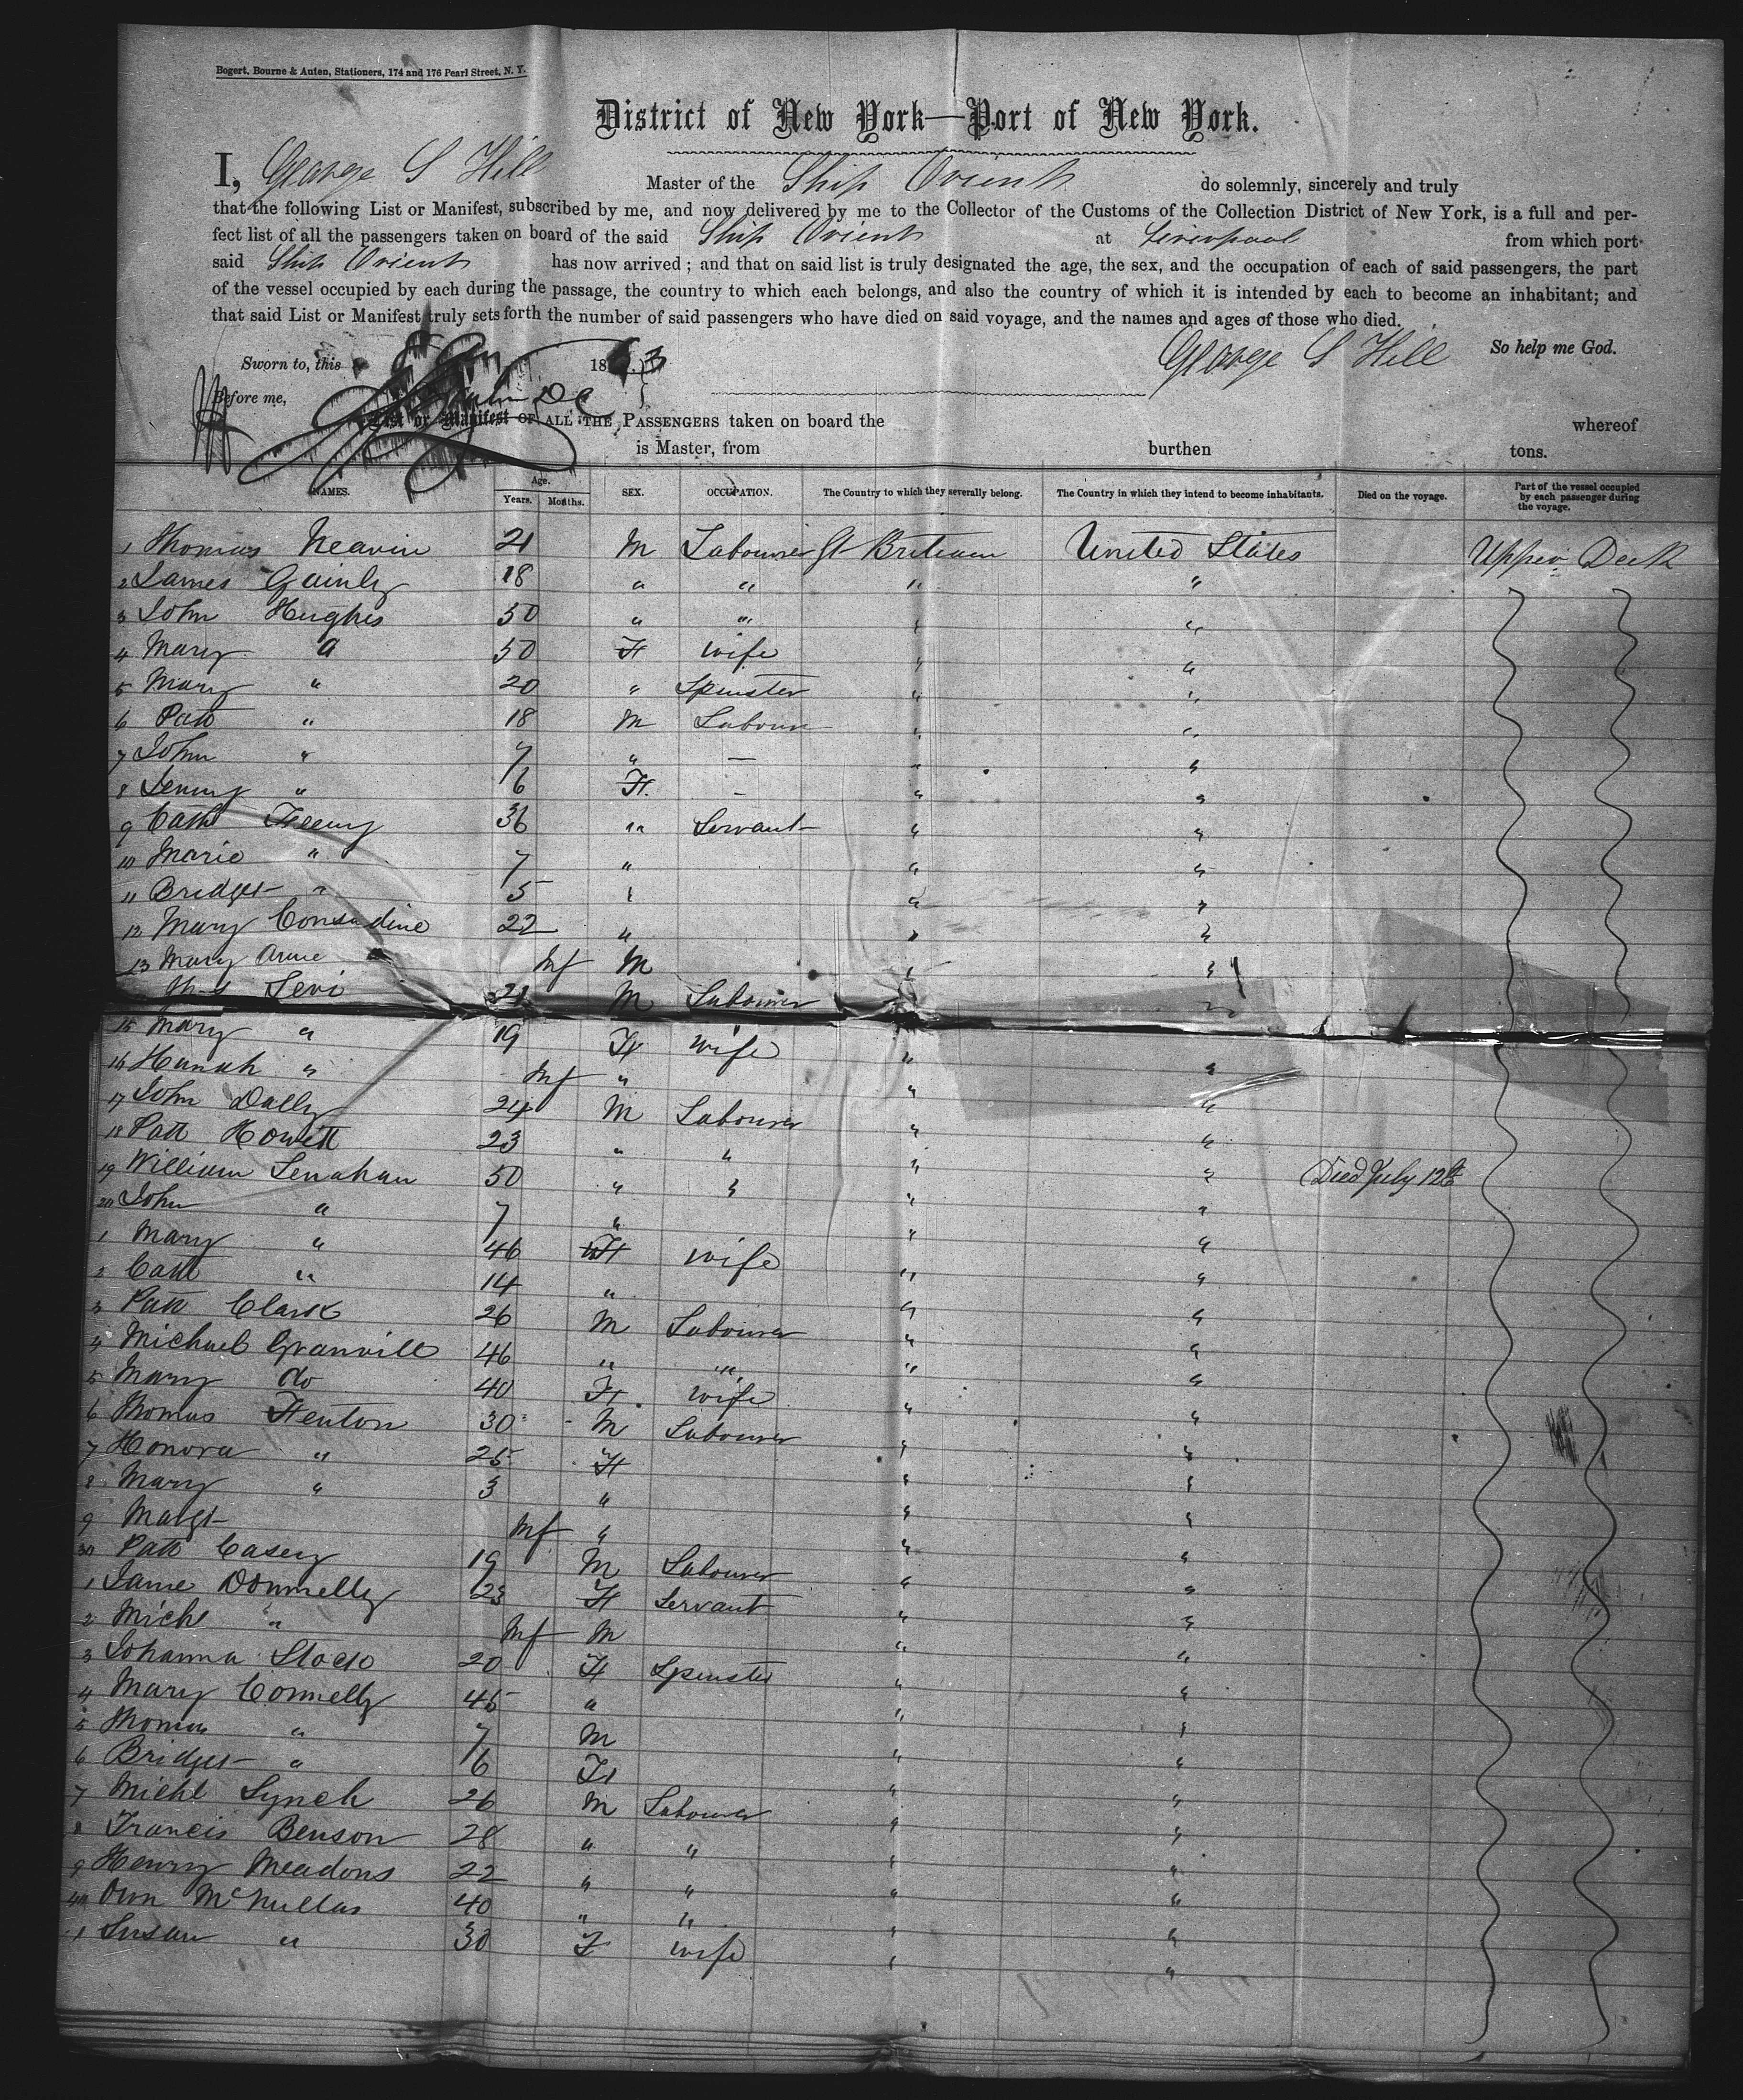 Bogert, Bourne & Auten, Stationers, 174 and 176 Pearl Street, N. Y.
District of New York—Port of New York.
I, George S Hill Master of the Ship Orient do solemnly, sincerely and truly
that the following List or Manifest, subscribed by me, and now delivered by me to the Collector of the Customs of the Collection District of New York, is a full and per-
fect list of all the passengers taken on board of the said Ship Orient at Liverpool from which port
said Ship Orient has now arrived; and that on said list is truly designated the age, the sex, and the occupation of each of said passengers, the part
of the vessel occupied by each during the passage, the country to which each belongs, and also the country of which it is intended by each to become an inhabitant; and
that said List or Manifest truly sets forth the number of said passengers who have died on said voyage, and the names and ages of those who died.
So help me God.
Sworn to, this 1863 George S Hill
Before me,
List or Manifest OF ALL THE PASSENGERS taken on board the whereof
is Master, from burthen tons.
NAMES. Age. Years. Months. SEX. OCCUPATION. The Country to which they severally belong. The Country in which they intend to become inhabitants. Died on the voyage. Part of the vessel occupied by each passenger during the voyage.
1 Thomas Neavin 21 M Labourer Gt Britain United States Upper Deck
2 James Gainly 18 " " " "
3 John Hughes 50 " " " "
4 Mary " 50 F wife " "
5 Mary " 20 " Spinster " "
6 Patt " 18 M Labour " "
7 John " 7 " — " "
8 Jenny " 6 F. – " "
9 Cath Feeny 36 " Servant " "
10 Marie " 7 " " "
11 Bridget " 5 " " "
12 Mary Consadine 22 " " "
13 Mary Anne Inf M " "
Levi 21 M Labourer "
15 Mary " 19 F wife " "
16 Hanah " Inf " " "
17 John Dally 24 M Labourer " "
18 Patt Howett 23 " " " "
19 William Lenahan 50 " " " " Died July 12th
20 John " 7 " " "
1 Mary " 46 F wife " "
2 Cath " 14 " " "
3 Patt Clark 26 M Labourer " "
4 Michael Granvill 46 " " " "
5 Mary do 40 F wife " "
6 Thomas Fenton 30 M Labourer " "
7 Honora " 25 F " "
8 Mary " 3 " " "
9 Margt Inf " " "
30 Patt Casey 19 M Labourer " "
1 Jane Donnelly 23 F Servant " "
2 Michl " Inf M " "
3 Johanna Stack 20 F Spinster " "
4 Mary Connelly 45 " " "
5 Thomas " 7 M " "
6 Bridget " 6 F " "
7 Michl Lynch 26 M Labourer " "
8 Francis Benson 28 " " " "
9 Henry Meadows 22 " " " "
40 Own McNullas 40 " " " "
1 Susan " 30 F wife " "